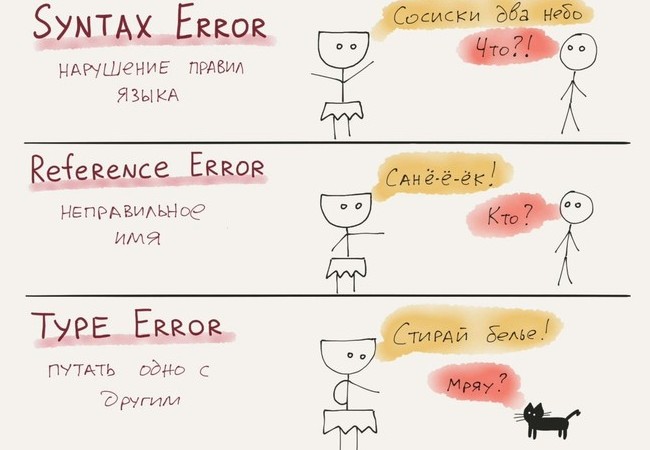 SYNTAX ERROR
НАРУШЕНИЕ ПРАВИЛ
ЯЗЫКА
Сосиски два небо
Что?!
Reference ERROR
НЕПРАВИЛЬНОЕ
ИМЯ
САНЁ-Ё-ЁК!
Кто?
TYPE ERROR
ПУТАТЬ ОДНО С
ДРУГИМ
Стирай белье!
Мряу?